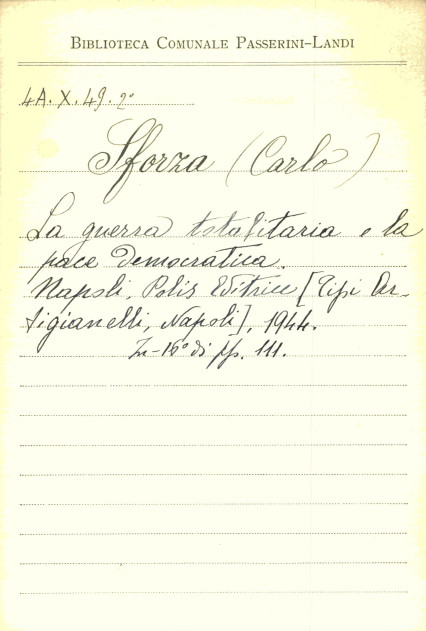 BIBLIOTECA COMUNALE PASSERINI-LANDI
4A. X. 49. 2°
Sforza (Carlo)
La guerra totalitaria e la
pace democratica.
Napoli, Polis Editrice [Tipi Ar-
tigianelli, Napoli], 1944.
In-16° di pp. 111.